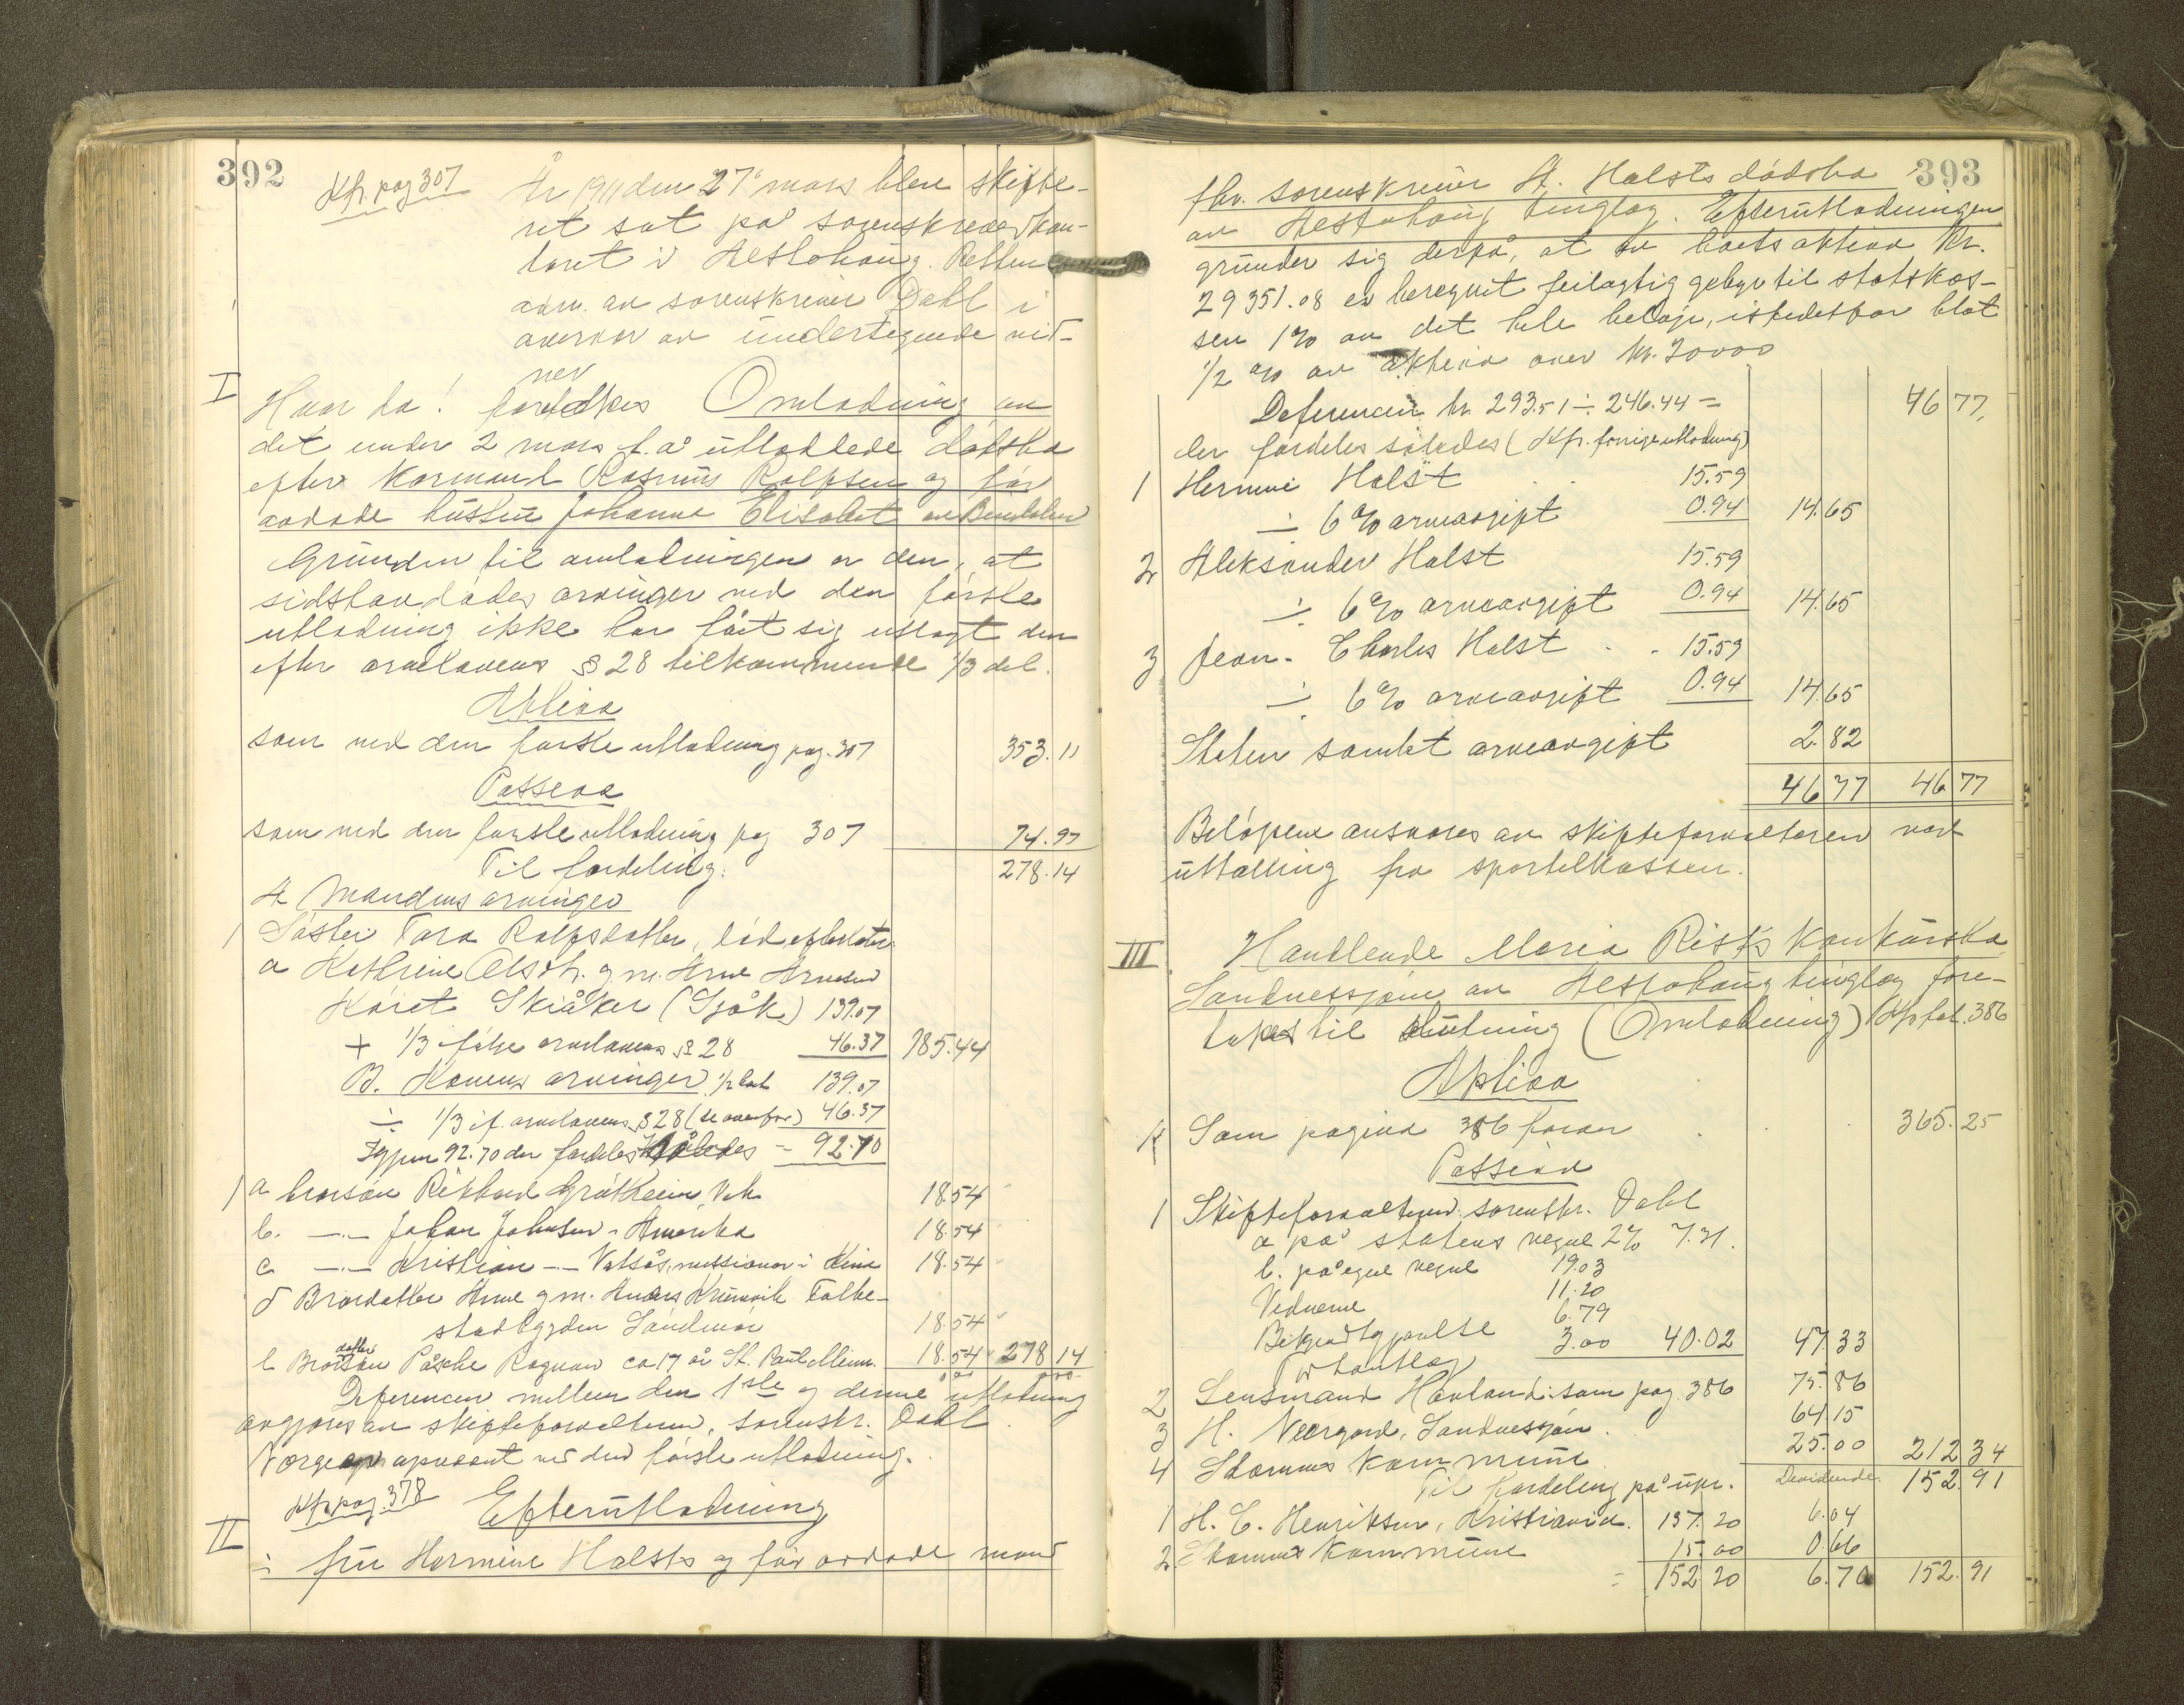 392
Kfr. pag 307
År 1911 den 27' mars blev skifte-
ret sat på sorenskriverkon-
toret i Alstahaug. Retten
adm. av sorenskriver Dahl i
overvær av undertegnede vid-
ner
I
Hvor da! foretokes Omlodning av
det under 2 mars f. a utloddede dødsbo
efter Kormand Rasmus Rolfsen og før
avdøde hustru Johanne Elisabet
Grunden til omlodningen er den, at
sidstavdødes arvinger ved den første
utlodning ikke har fåt sig utlagt den
efter arvelovens § 28 tilkommende 1/3 del.
Aktiva
som ved den første utlodning pag. 307 353.11
Passiva
som ved den første utlodning pag 307 74.97
Til fordeling: 278.14
A Mandens arvinger
1 Søster Tora Rolfsdatter, død, efterlater
a Kathrine Olsdt. g. m. Arne Arnesen
Køret Skiåker (Sjåk) 139.07
+ 1/3 ifølge arvelovens § 28 46.37 185.44
B. Konens arvinger 1/2 bok 139.07
÷ 1/3 if. arvelovens § 28 (se ovenfor) 46.37
Igjen 92.70 der fordeles således = 92.70
1 a brorsøn Rikhard Grøtheim, Vik 18.54
b. —"— Johan Johnsen - Amerika 18.54
c —"— Kristian —"— Vatsås, missionær i Kina 18.54
d Brordatter Anne g. m. Anders Krunvik Talbe-
stadbygden Sandmør 18.54
e Brordatter Påske Ragnar ca 17 år St. Paul Minn. 18.54 278 14
Deferencen mellem den 1ste og denne utlodning
avgjøres av skifteforvalteren, sorenskr. Dahl.
Vorge opnævnt ved den første utlodning.
Kfr. pag. 378
II
Efterutlodning
i fru Hermine Halsts og før avdøde mand
393
fhv. sorenskriver A. Halsts dødsbo
av Alstahaug tinglag. Efterutlodningen
grunder sig derpå, at av boets aktiva Kr.
29351.08 er beregnet feilagtig gebyr til statskas-
sen 1% av det hele beløp, istedetfor blot
1/2 % av aktiva over kr. 20000
Deferencen kr. 293.51 ÷ 246.44 = 46 77
der fordeles således (Kfr. forrige utlodning)
1 Hermine Halst 15.59
÷ 6% arveavgift 0.94 14.65
2 Aleksander Halst 15.59
÷ 6% arveavgift 0.94 14.65
3 Jean-Charles Halst 15.59
÷ 6% arveavgift 0.94 14.65
Staten samlet arveavgift 2.82
46 77 46 77
Beløpene ansvares av skifteforvalteren ved
uttælling fra sportelkassen.
III
Handlende Maria Risks konkursbo
Sandnessjøen av Alstahaug tinglag fore-
takes til slutning (Omlodning) Kfr fol. 386
Aktiva
Som pagina 386 foran 365.25
Passiva
1 Skifteforvalteren sorenskr. Dahl
a på statens vegne 2% 7.31.
b. på egne vegne 19.03
Vidnerne 11.20
6.79
Bekjendtgjørelse 3.00 40.02 47.33
2 Lensmand Havland: som pag. 386 75.86
3 H. Neergard, Sandnessjøen 64.15
4 Stamnes kommune 25.00 212 34
Til fordeling på upr. Devidende 152.91
1 H. C. Henriksen, Kristiania. 137.20 6.04
2 Stamnes kommune 15.00 0.66
= 152 20 6.70 152.91